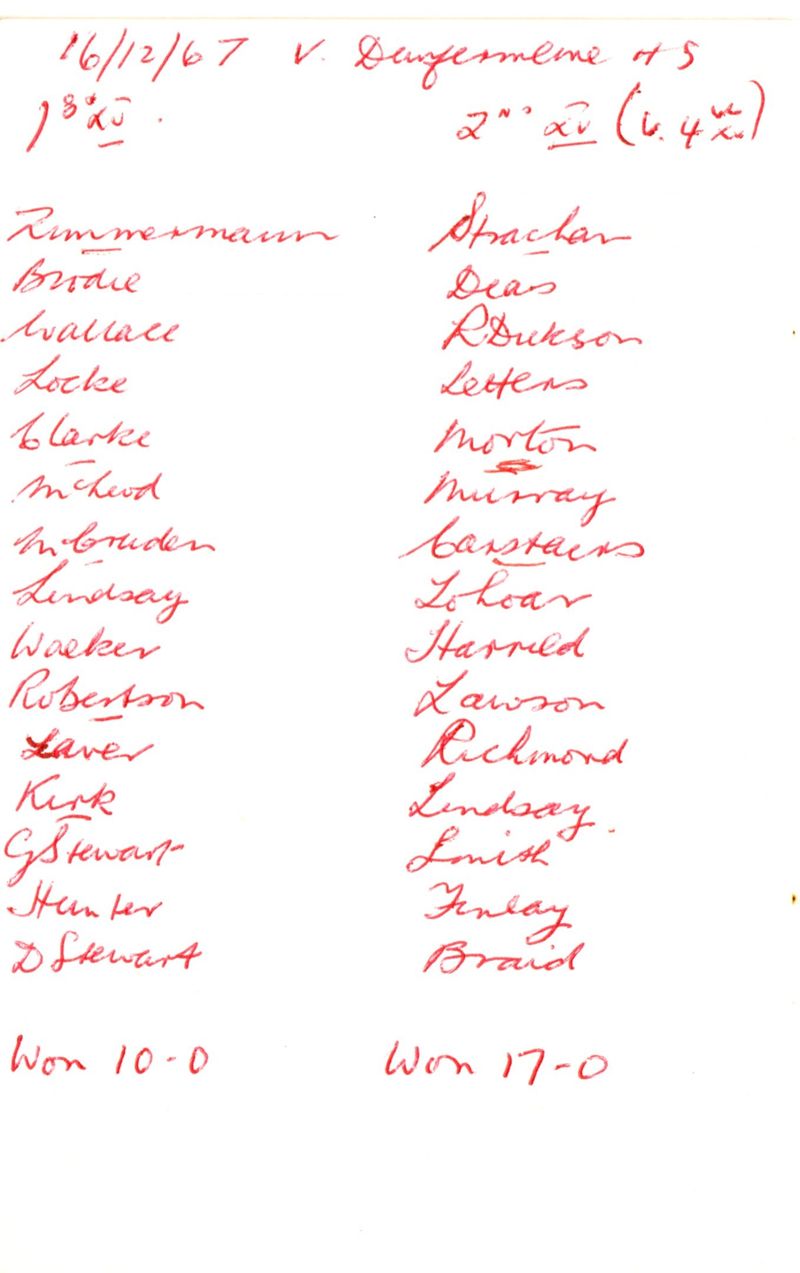 16/12/67 V. Dunfermline HS
1st XV. 2nd XV (v. 4th XV)
Zimmermann Strachan
Brodie Deas
Wallace R Dickson
Locke Letters
Clarke Morton
McLeod Murray
McCruden Carstairs
Lindsay Lohoar
Walker Harrild
Robertson Lawson
Laver Richmond
Kirk Lindsay.
G Stewart Smith
Hunter Finlay
D Stewart Braid
Won 10-0 Won 17-0